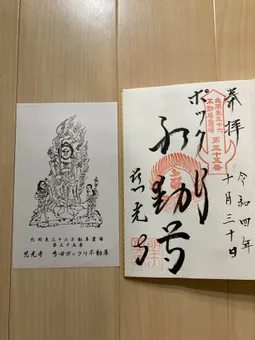 北関東三十六不動尊霊場
第三十五番
慈光寺 弓田ポックリ不動尊
奉拝
令和四年
十月三十日
北関東三十六
不動尊霊場
第三十五番
ポックリ
不動尊
慈光寺